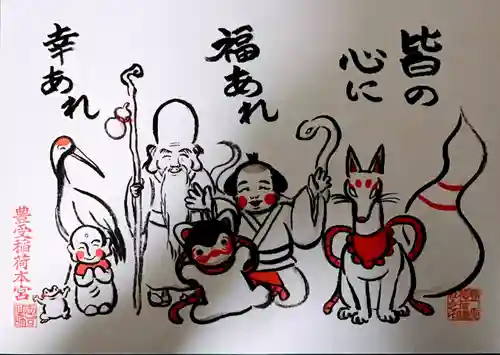 皆の
心に
福あれ
幸あれ
豊受稲荷本宮